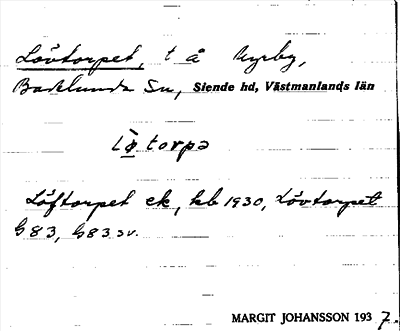 Lövtorpet, t å Nyrby,
Badelunda Sn, Siende hd, Västmanlands län
lø̨torpə
Löftorpet ek, kb 1930, Lövtorpet
G83, G83sv.
MARGIT JOHANSSON 1937.